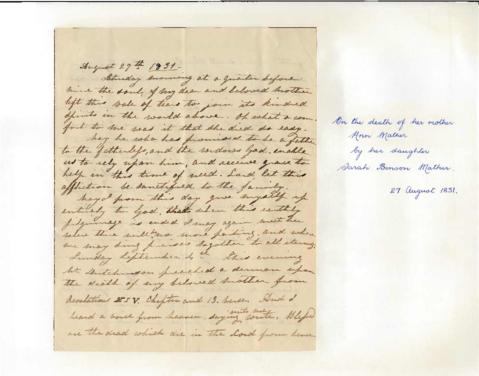 August 27th 1831.
Sunday morning at a quarter before
nine the soul, of my dear and beloved Mother
left this vale of tears to join its kindred
spirits in the world above. Oh what a com-
fort to me was it that she died so easy.
May he who has promised to be a father
to the fatherless, and the widows God, enable
us to rely upon him, and receive grace to
help in this time of need. Lord let this
affliction be sanctified to the family.
May I from this day give myself up
entirely to God, that when this earthly
pilgrimage is ended I may again meet her
where there will be no more parting, and where
we may sing praises together to all eternity.
Sunday September 4th This evening
Mr Hutchinson preached a sermon upon
the death of my beloved Mother from
Revelations XIV. Chapter and 13. verse. And I
heard a voice from heaven, saying unto me, Write, Blessed
are the dead which die in the Lord from hence
On the death of her mother
Mather
by her daughter
Sarah Benson Mather.
27 August 1831.